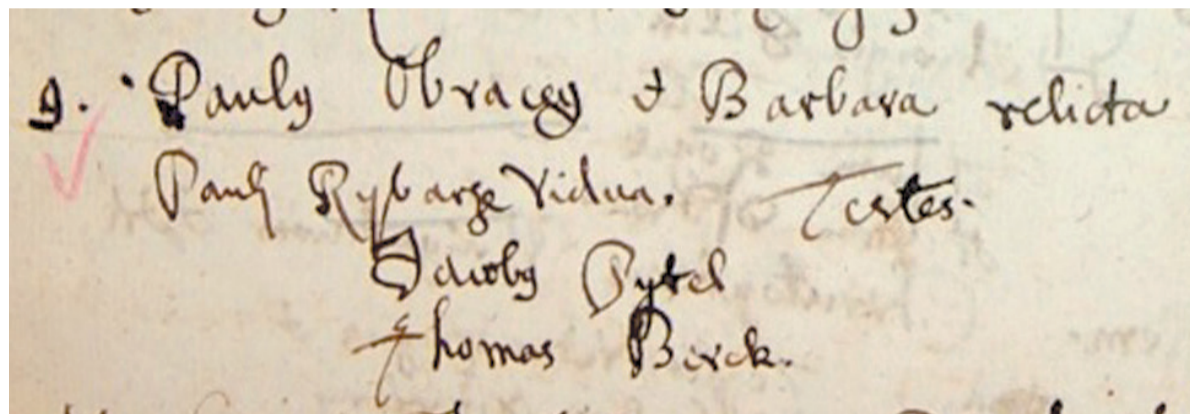 9. Pauly Obraczy & Barbara relicta
Pauli Rybarze Vidua. Testes.
Jacoby Pytel
Thomas Berck.